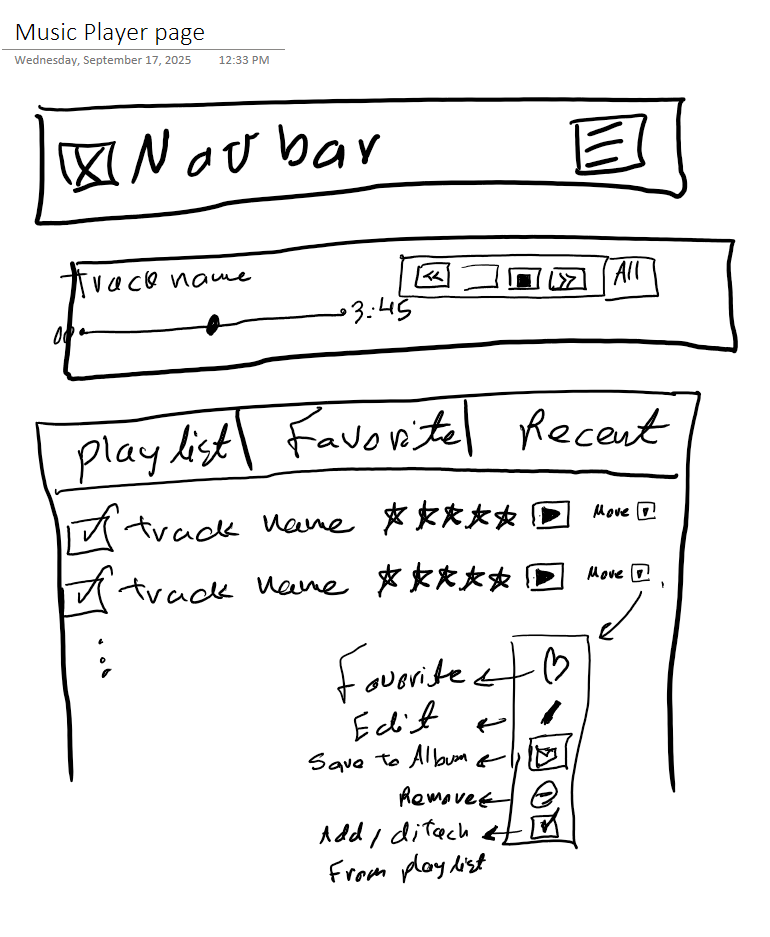 Music Player page
Wednesday, September 17, 2025 12:33 PM
Navbar
track name << >> All
00 3:45
playlist Favorite Recent
track name Move
track name Move
Favorite
Edit
Save to Album
Remove
Add / ditach
From playlist